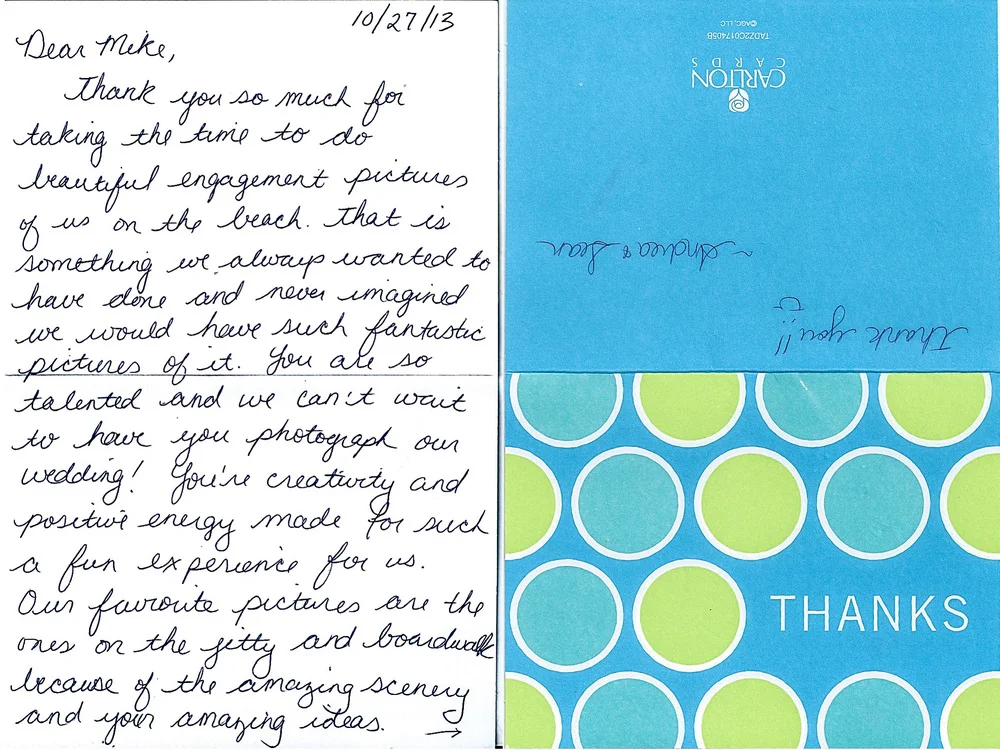 10/27/13
Dear Mike,
Thank you so much for
taking the time to do
beautiful engagement pictures
of us on the beach. That is
something we always wanted to
have done and never imagined
we would have such fantastic
pictures of it. You are so
talented and we can't wait
to have you photograph our
wedding! You're creativity and
positive energy made for such
a fun experience for us.
Our favorite pictures are the
ones on the jetty and boardwalk
because of the amazing scenery
and your amazing ideas. →
Thank you!!
~Andrea & Sean
CARLTON
CARDS
TADZ2C017405B
©AGC, LLC
THANKS